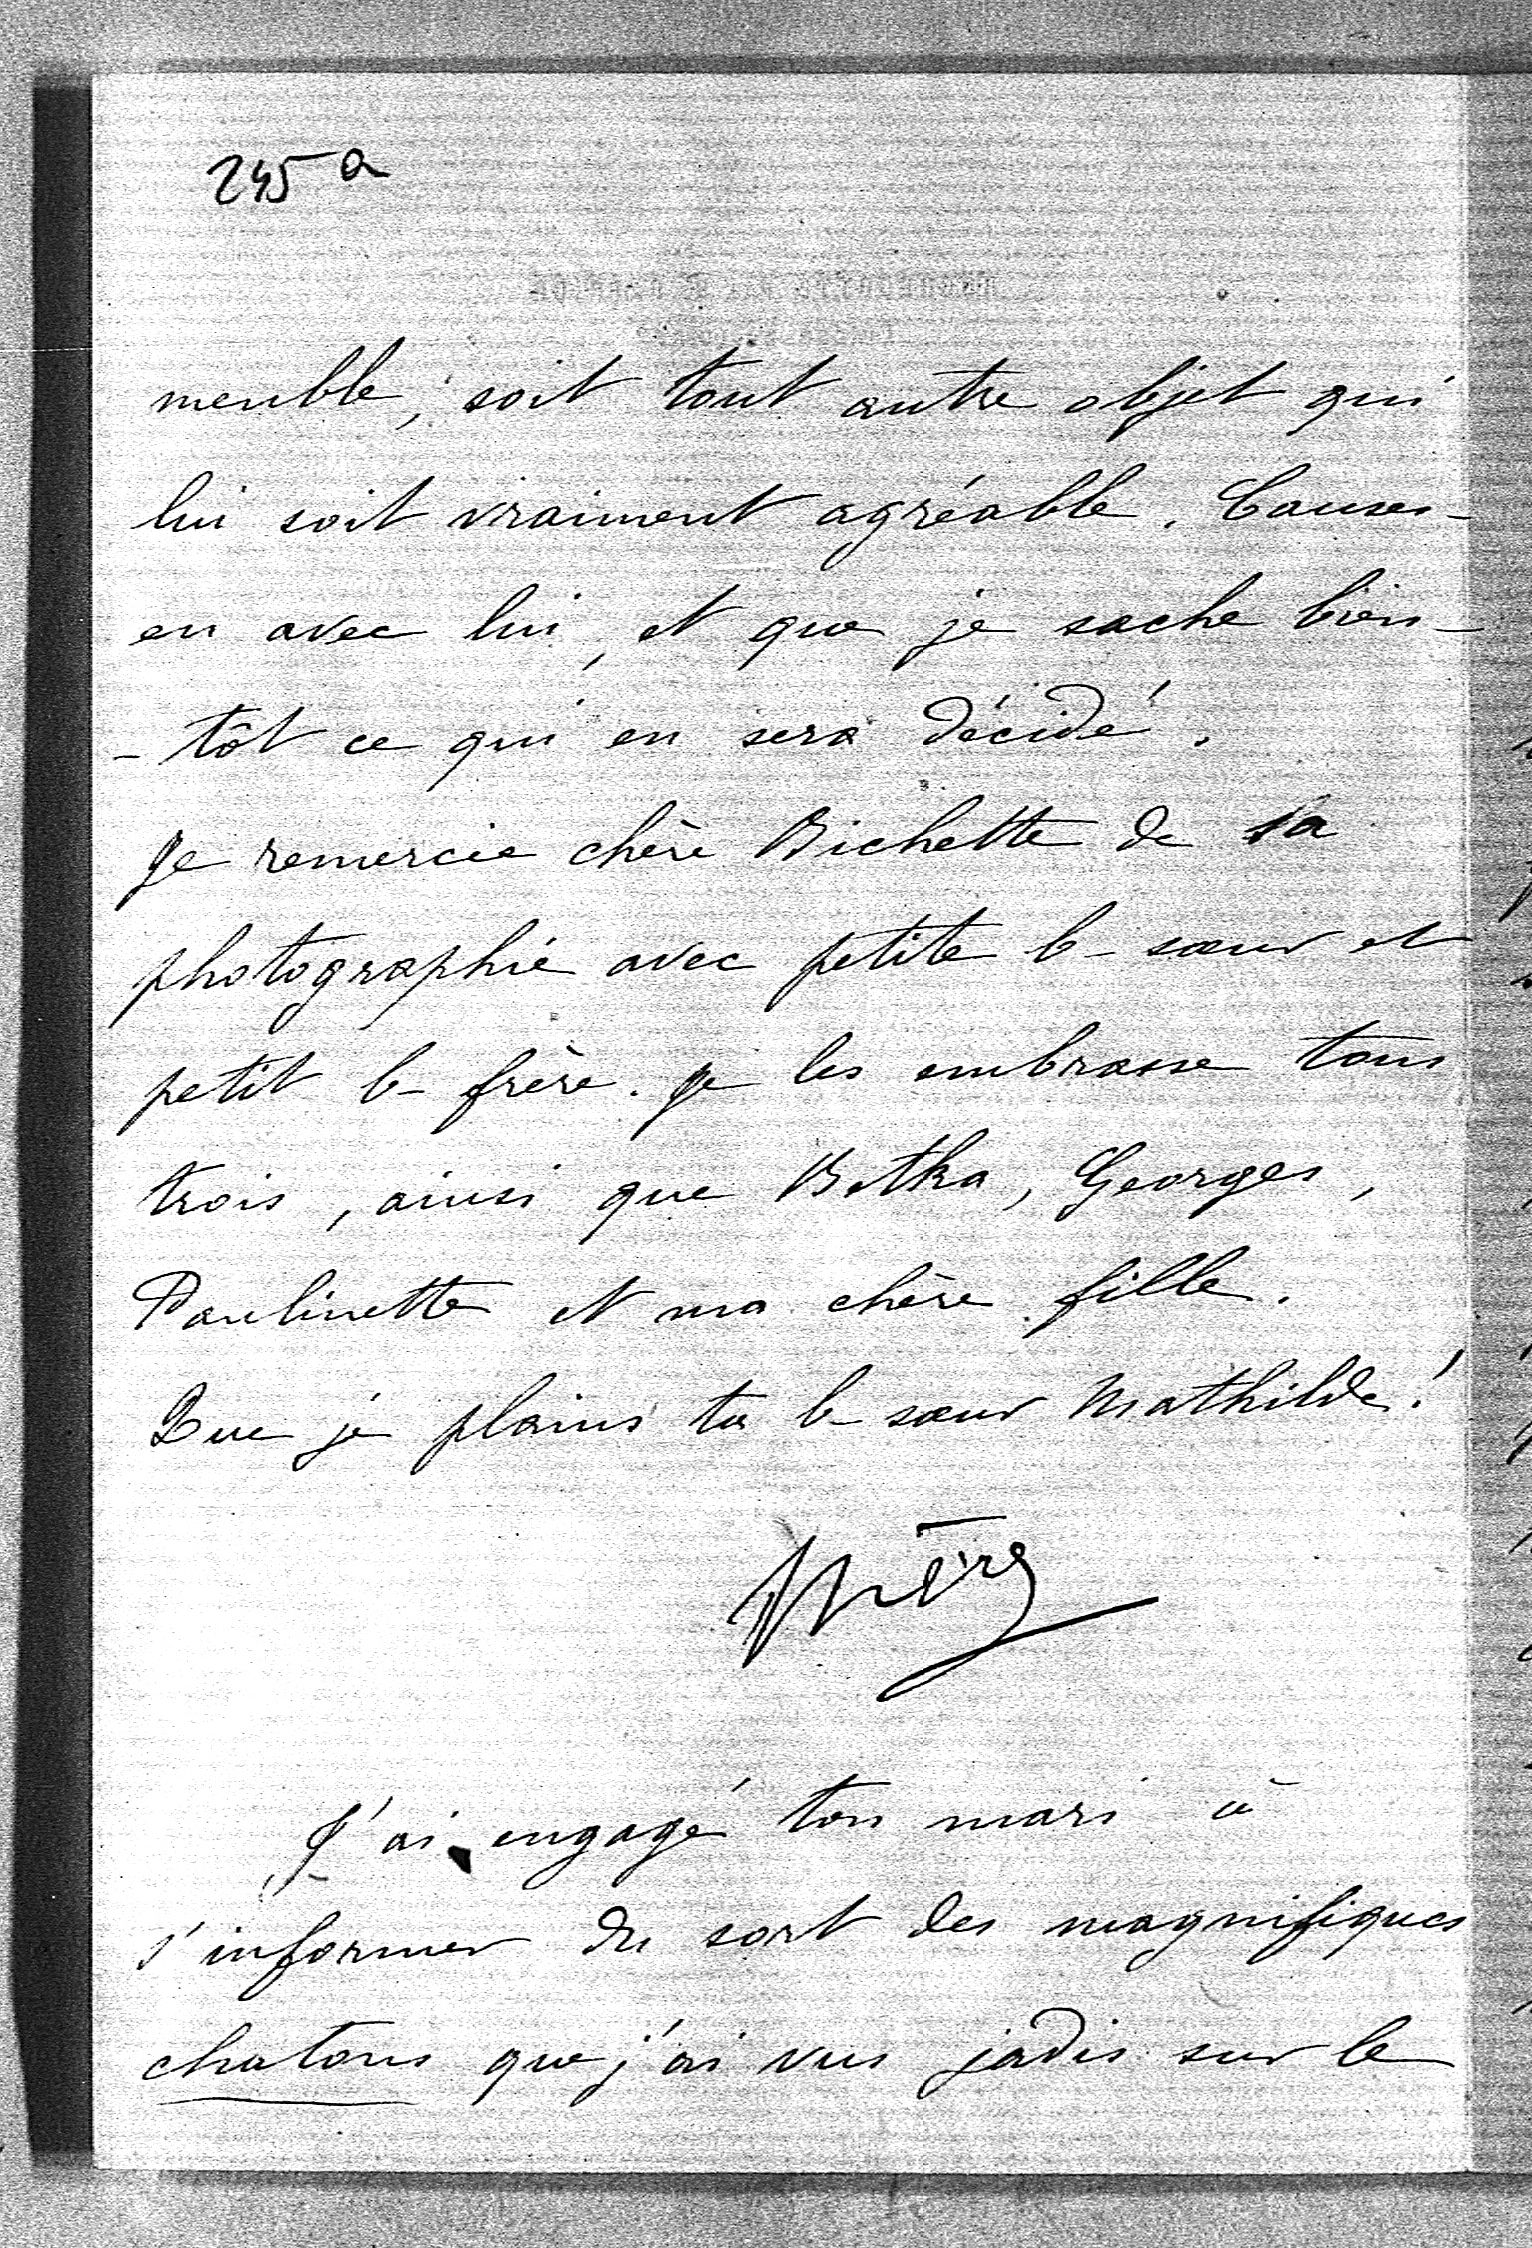 245 a
meuble, soit tout autre objet qui
lui soit vraiment agréable. Causes-
en avec lui, et que je sache bien-
-tôt ce qui en sera décidé.
Je remercie chère Bichette de sa
photographie avec petite b-sœur et
petit b-frère. Je les embrasse tous
trois, ainsi que Betka, Georges,
Paulinette et ma chère fille.
Que je plains ta b-sœur Mathilde!
Mère
J'ai engagé ton mari à
s'informer du sort des magnifiques
chatons que j'ai vus jadis sur le